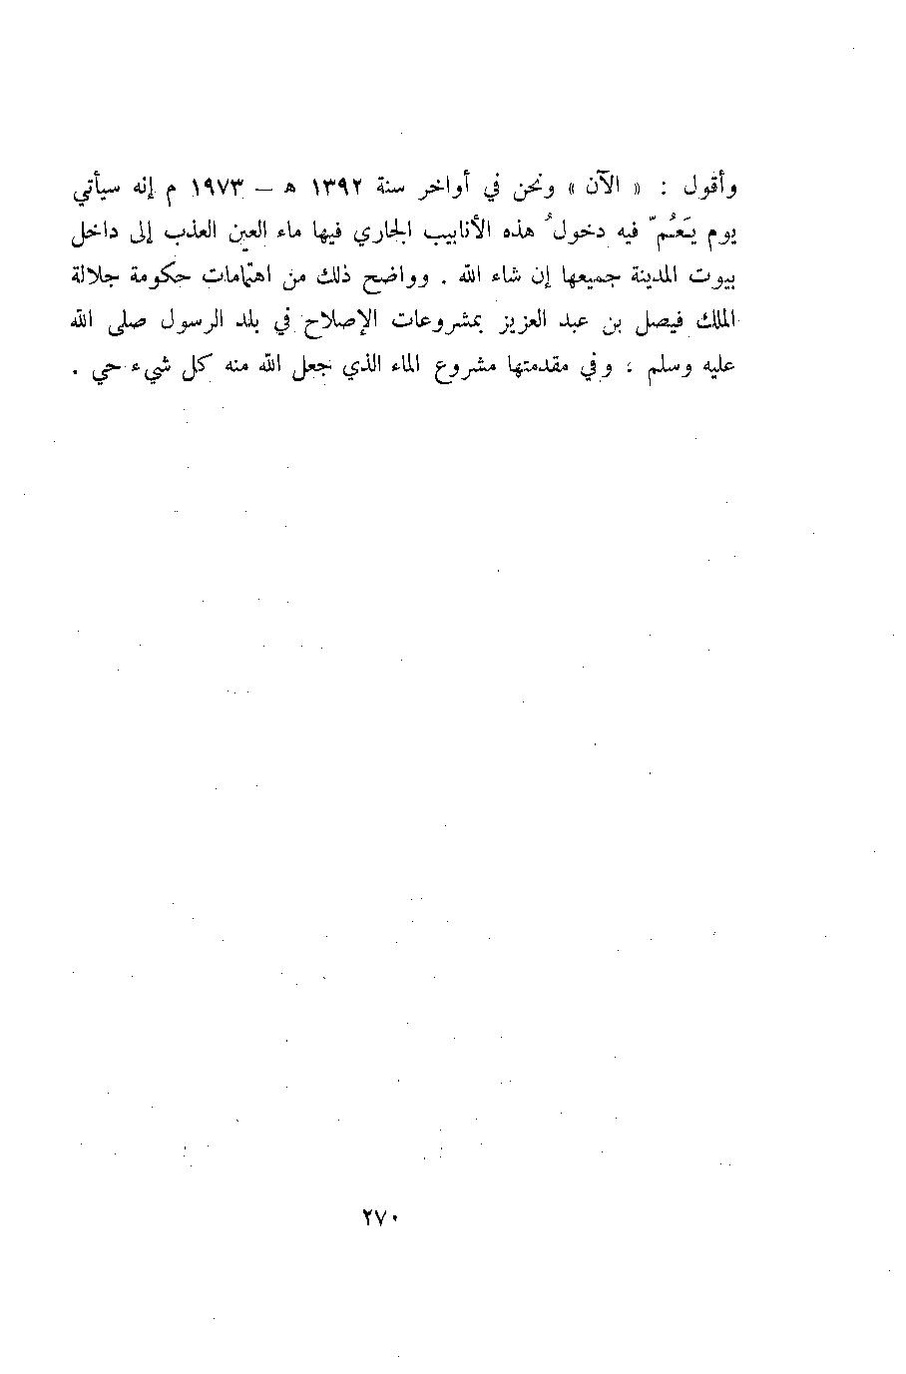 وأقول : « الآن » ونحن في أواخر سنة ١٣٩٢ هـ – ١٩٧٣ م إنه سيأتي
يوم يَعُمّ فيه دخولُ هذه الأنابيب الجاري فيها ماء العين العذب إلى داخل
بيوت المدينة جميعها إن شاء الله . وواضح ذلك من اهتمامات حكومة جلالة
الملك فيصل بن عبد العزيز بمشروعات الإصلاح في بلد الرسول صلى الله
عليه وسلم ، وفي مقدمتها مشروع الماء الذي جعل الله منه كل شيء حي .
٢٧٠